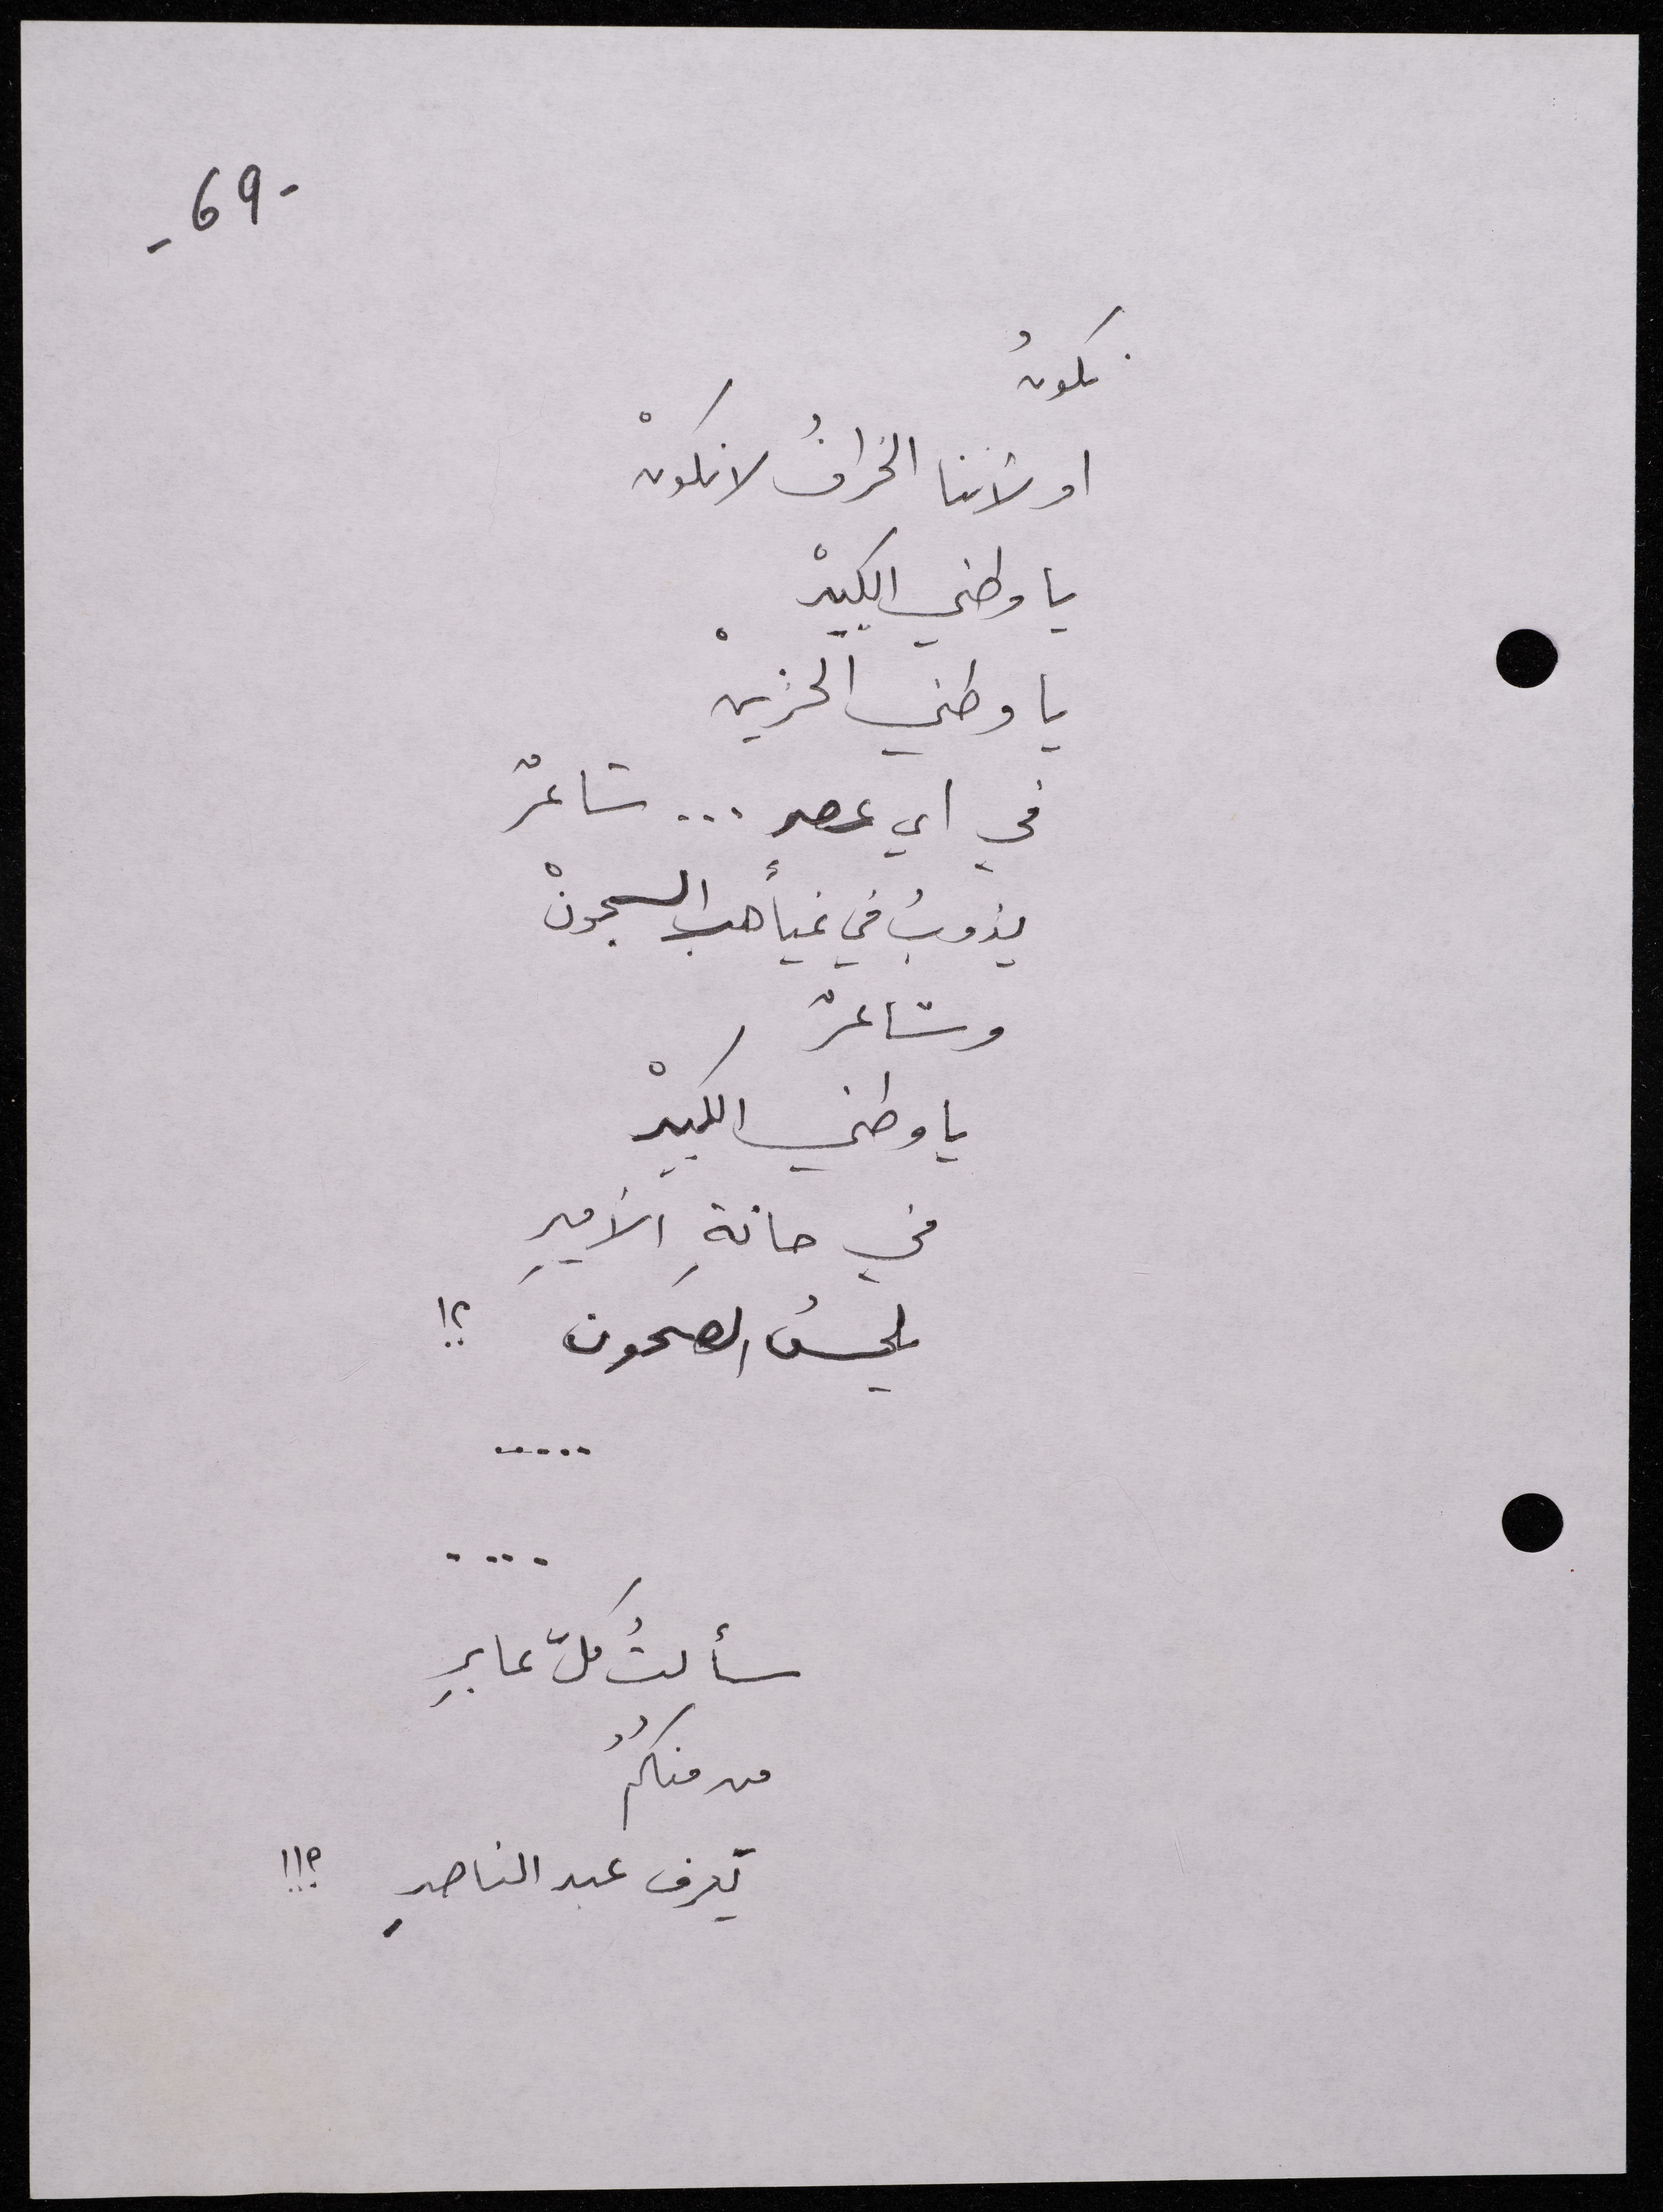 - 69 -
نكونُ
او لأننا الخرافُ لا نكونْ
يا وطني الكبيرْ
يا وطني الحزينْ
في اي عصر ... شاعرٌ
يذوبُ في غيأهب السجونْ
وشاعرٌ
يا وطني الكبيرْ
في حانةِ الأميرِ
يلحسُ الصحون ؟!
.....
....
سألتُ كلّ عابرِ
من منكمُ
يعرف عبد الناصرِ ؟!!